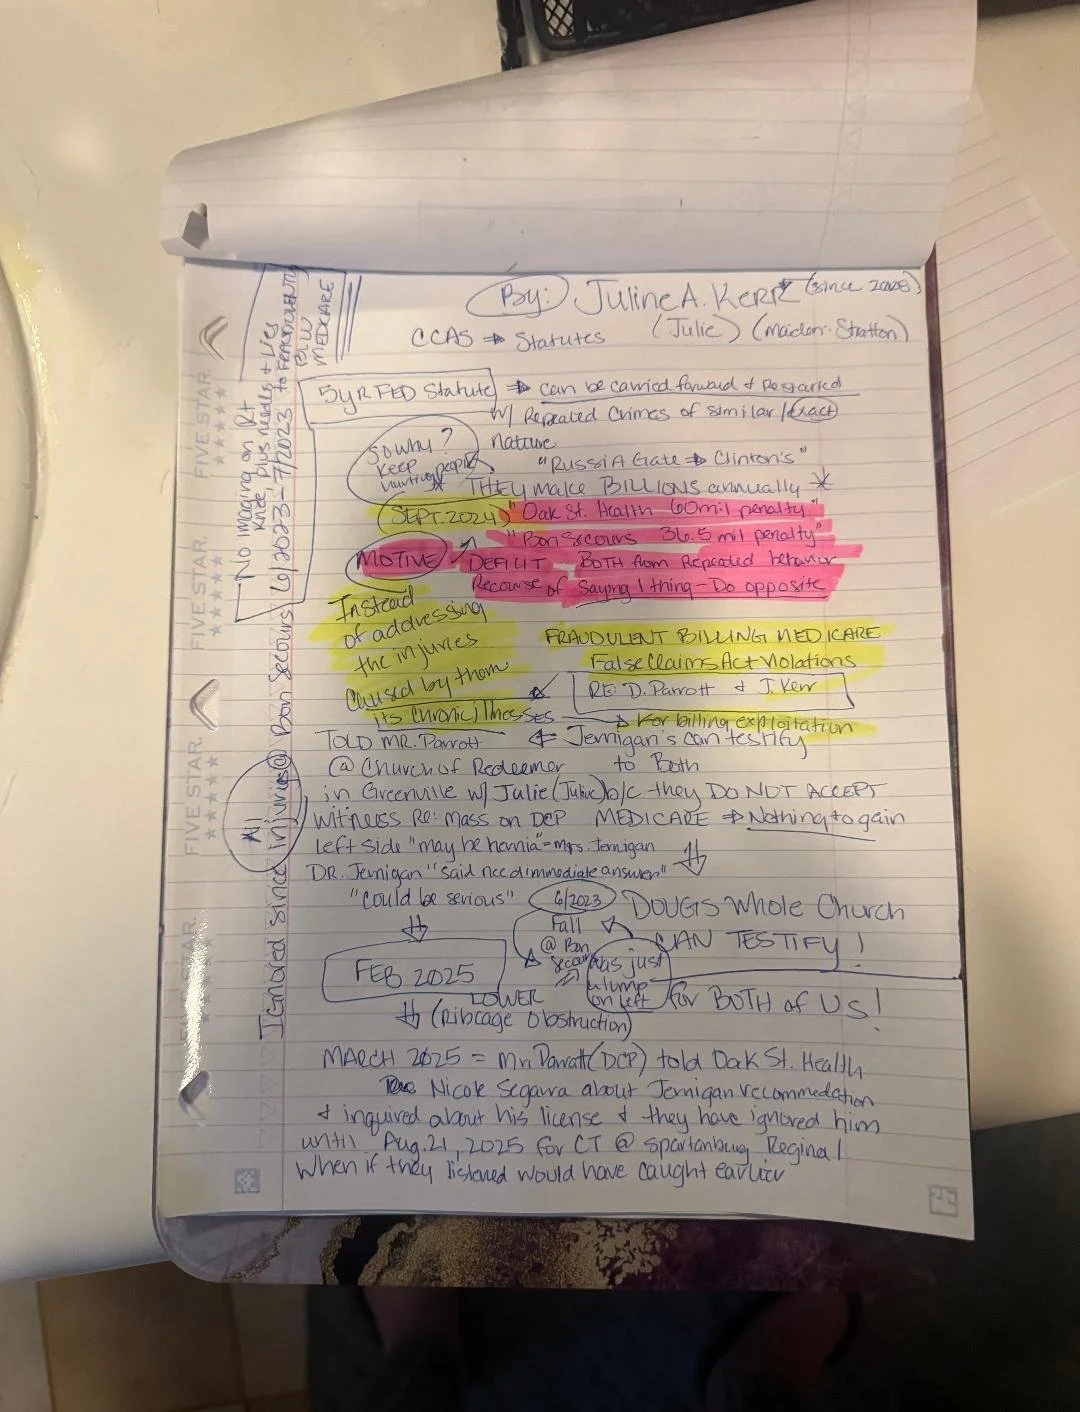 By: Juline A. Kerr (since 2008)
CCAS → Statutes (Julie) (Maiden: Stratton)
5yr FED Statute → can be carried forward & Restarted
w/ Repeated Crimes of similar/exact
nature
So why? Keep hurting people
"RussiA Gate → Clinton's"
THEY make BILLIONS annually *
(SEPT. 2024) "Oak St. Health 60 mil penalty"
"Bon Secours 36.5 mil penalty"
MOTIVE DEFICIT BOTH from Repeated behavior
Recourse of Saying 1 thing - Do opposite
Instead
of addressing
the injuries
Caused by them
its chronic illnesses
FRAUDULENT BILLING MEDICARE
False Claims Act Violations
RE: D. Parrott & J. Kerr
→ For billing exploitation
TOLD MR. Parrott ← Jernigan's can testify
@ Church of Redeemer to Both
in Greenville w/ Julie (Juline) b/c they DO NOT ACCEPT
Witness Re: Mass on DCP MEDICARE → Nothing to gain
left side "may be hernia" = Mrs. Jernigan
DR. Jernigan "said need immediate answer"
"could be serious" 6/2023 DOUG'S Whole Church
CAN TESTIFY!
Fall
@ Bon
Secours
was just
a lump
on left
for BOTH of US!
FEB 2025
LOWER
(Ribcage Obstruction)
MARCH 2025 = Mr. Parratt (DCP) told Oak St. Health
Nicole Segarra about Jernigan recommedation
& inquired about his license & they have ignored him
until Aug. 21, 2025 for CT @ Spartanburg Reginal
When if they listened would have caught earlier
All
Ignored since injuries @ Bon Secours 6/2023-7/2023 to
No imaging on Rt
Knee plus needs + Lies
MEDICARE
FIVE STAR.
FIVE STAR.
FIVE STAR.